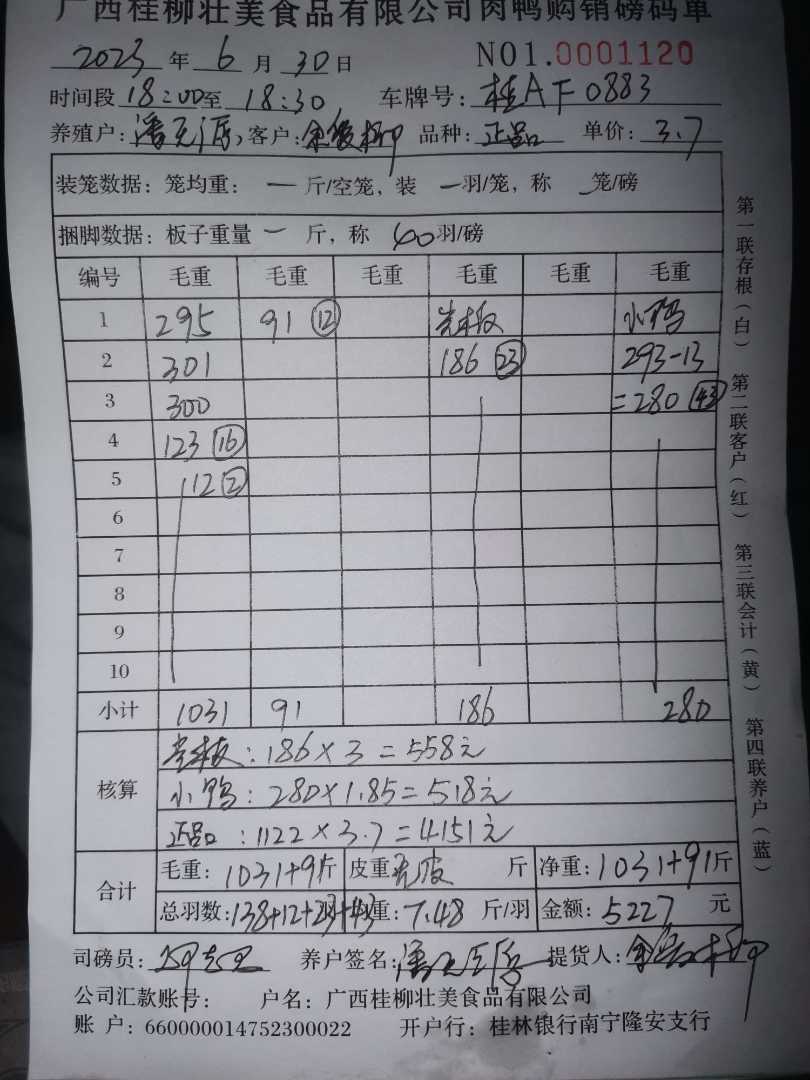 广西桂柳壮美食品有限公司肉鸭购销磅码单
2023年6月30日 NO1.0001120
时间段18:00至18:30 车牌号:桂AF0883
养殖户: 客户: 品种:正品 单价:3.7
装笼数据:笼均重:一斤/空笼,装一羽/笼,称一笼/磅
捆脚数据:板子重量一斤,称40羽/磅
编号 毛重 毛重 毛重 毛重 毛重 毛重
1 295 91 ⑫ 光板 小鸭
2 301 186 ㉓ 293-13
3 300 =280 ㊸
4 123 ⑯
5 112 ②
6
7
8
9
10
小计 1031 91 186 280
光板:186×3=558元
核算 小鸭:280×1.85=518元
正品:1122×3.7=4151元
合计 毛重:1031+91斤 皮重:克皮斤 净重:1031+91斤
总羽数:138+12+23+43 均重:7.48斤/羽 金额:5227元
司磅员: 养户签名: 提货人:
公司汇款账号: 户名:广西桂柳壮美食品有限公司
账户:660000014752300022 开户行:桂林银行南宁隆安支行
第一联存根(白) 第二联客户(红) 第三联会计(黄) 第四联养户(蓝)